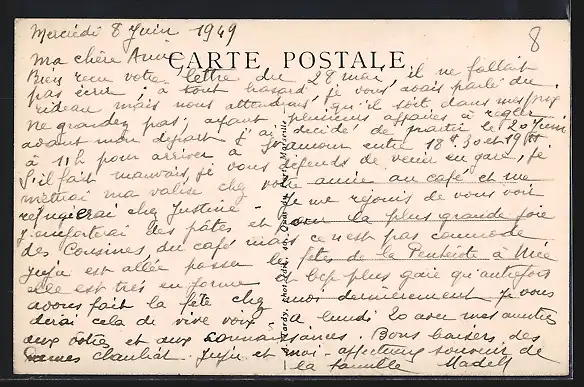 Mercredi 8 Juin 1949
8
CARTE POSTALE
Ma chère Amie
Bien reçu votre lettre du 28 mai, il ne fallait
pas écrire, à tout hasard je vous avais parlé du
rideau mais nous attendrons qu'il soit dans mes prix
Ne grondez pas, ayant plusieurs affaires à régler
avant mon départ j'ai décidé de partir le 20 Juin
à 11h pour arriver à entre 18h30 et 19h
S'il fait mauvais, je vous défends de venir en gare, je
mettrai ma valise chez votre amie au café et me
réfugierai chez Justine - Je me réjouis de vous voir
J'emporterai des pâtes et la plus grande joie
des Cousines, du café mais ce n'est pas commode
Juju est allée passer les fêtes de la Pentecôte à Nice
elle est très en forme et bcp plus gaie qu'autrefois
avons fait la fête chez moi dernièrement Je vous
dirai cela de vive voix - à lundi 20 avec mes amitiés
aux vôtres et aux connaissances. Bons baisers des
Juju et moi - affectueux souvenir de
la famille Madell
Tardy, phot. édit., Quai du Port, Marseille